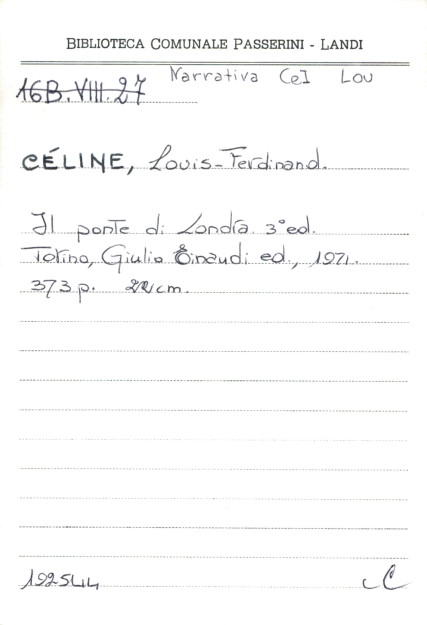 BIBLIOTECA COMUNALE PASSERINI - LANDI
Narrativa Cel Lou
16B.VIII.27
CÉLINE, Louis-Ferdinand.
Il ponte di Londra. 3°ed.
Torino, Giulio Einaudi ed., 1971.
373 p. 22 cm.
192544 C